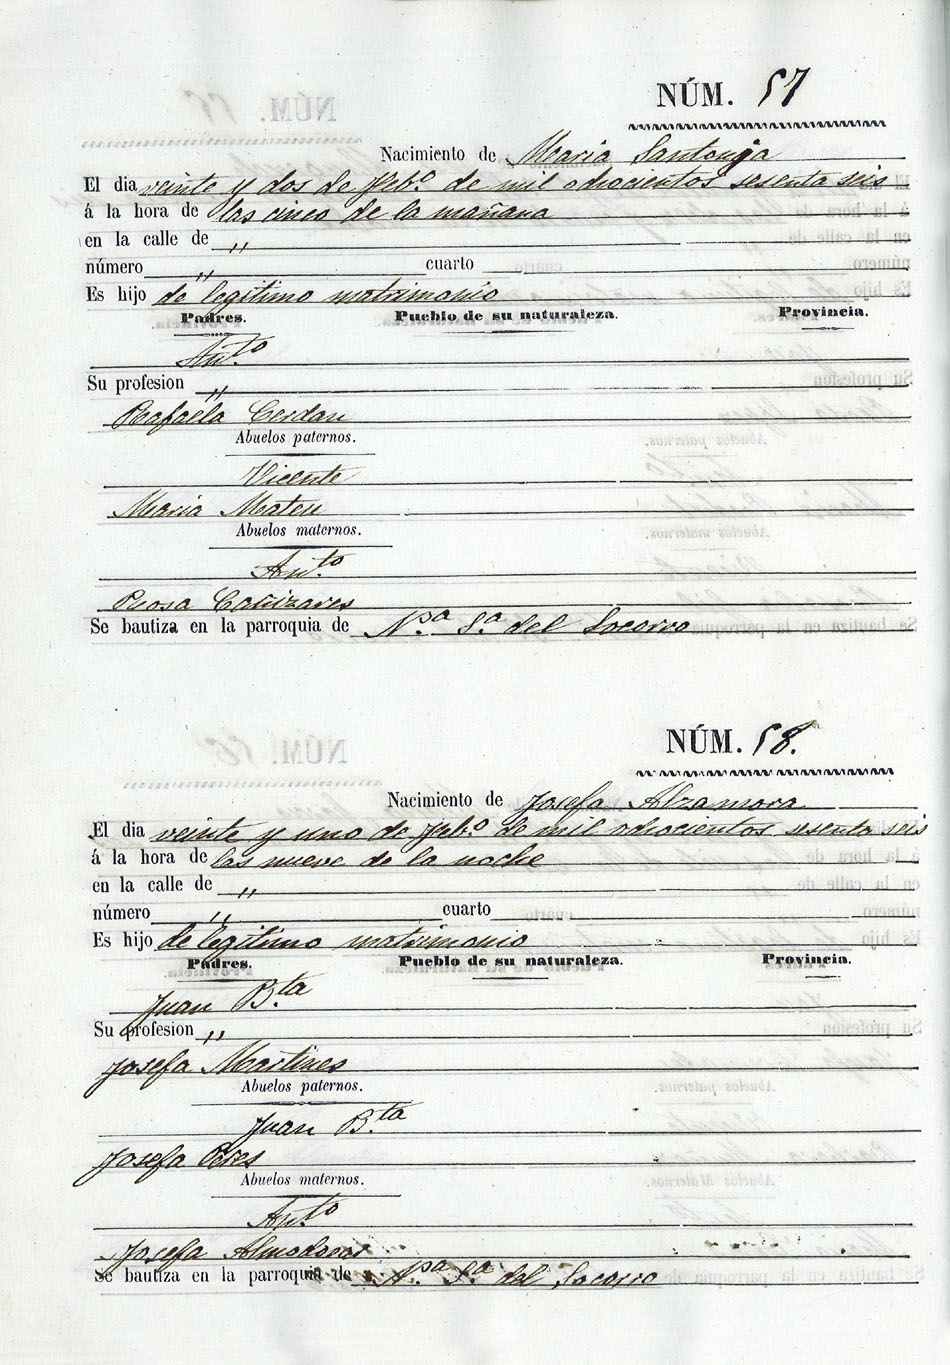 NÚM. 57
Nacimiento de Maria Santonja
El dia veinte y dos de Feb.º de mil ochocientos sesenta seis
á la hora de las cinco de la mañana
en la calle de "
número " cuarto
Es hijo de legitimo matrimonio
Padres. Pueblo de su naturaleza. Provincia.
Ant.º
Su profesion "
Rafaela Cerdan
Abuelos paternos.
Vicente
Maria Mateu
Abuelos maternos.
Ant.º
Rosa Cañizares
Se bautiza en la parroquia de N.ª S.ª del Socorro
NÚM. 58.
Nacimiento de Josefa Alzamora
El dia veinte y uno de Feb.º de mil ochocientos sesenta seis
á la hora de las nueve de la noche
en la calle de "
número " cuarto
Es hijo de legitimo matrimonio
Padres. Pueblo de su naturaleza. Provincia.
Juan B.ta
Su profesion "
Josefa Martines
Abuelos paternos.
Juan B.ta
Josefa Peres
Abuelos maternos.
Ant.º
Josefa Almodovar
Se bautiza en la parroquia de N.ª S.ª del Socorro